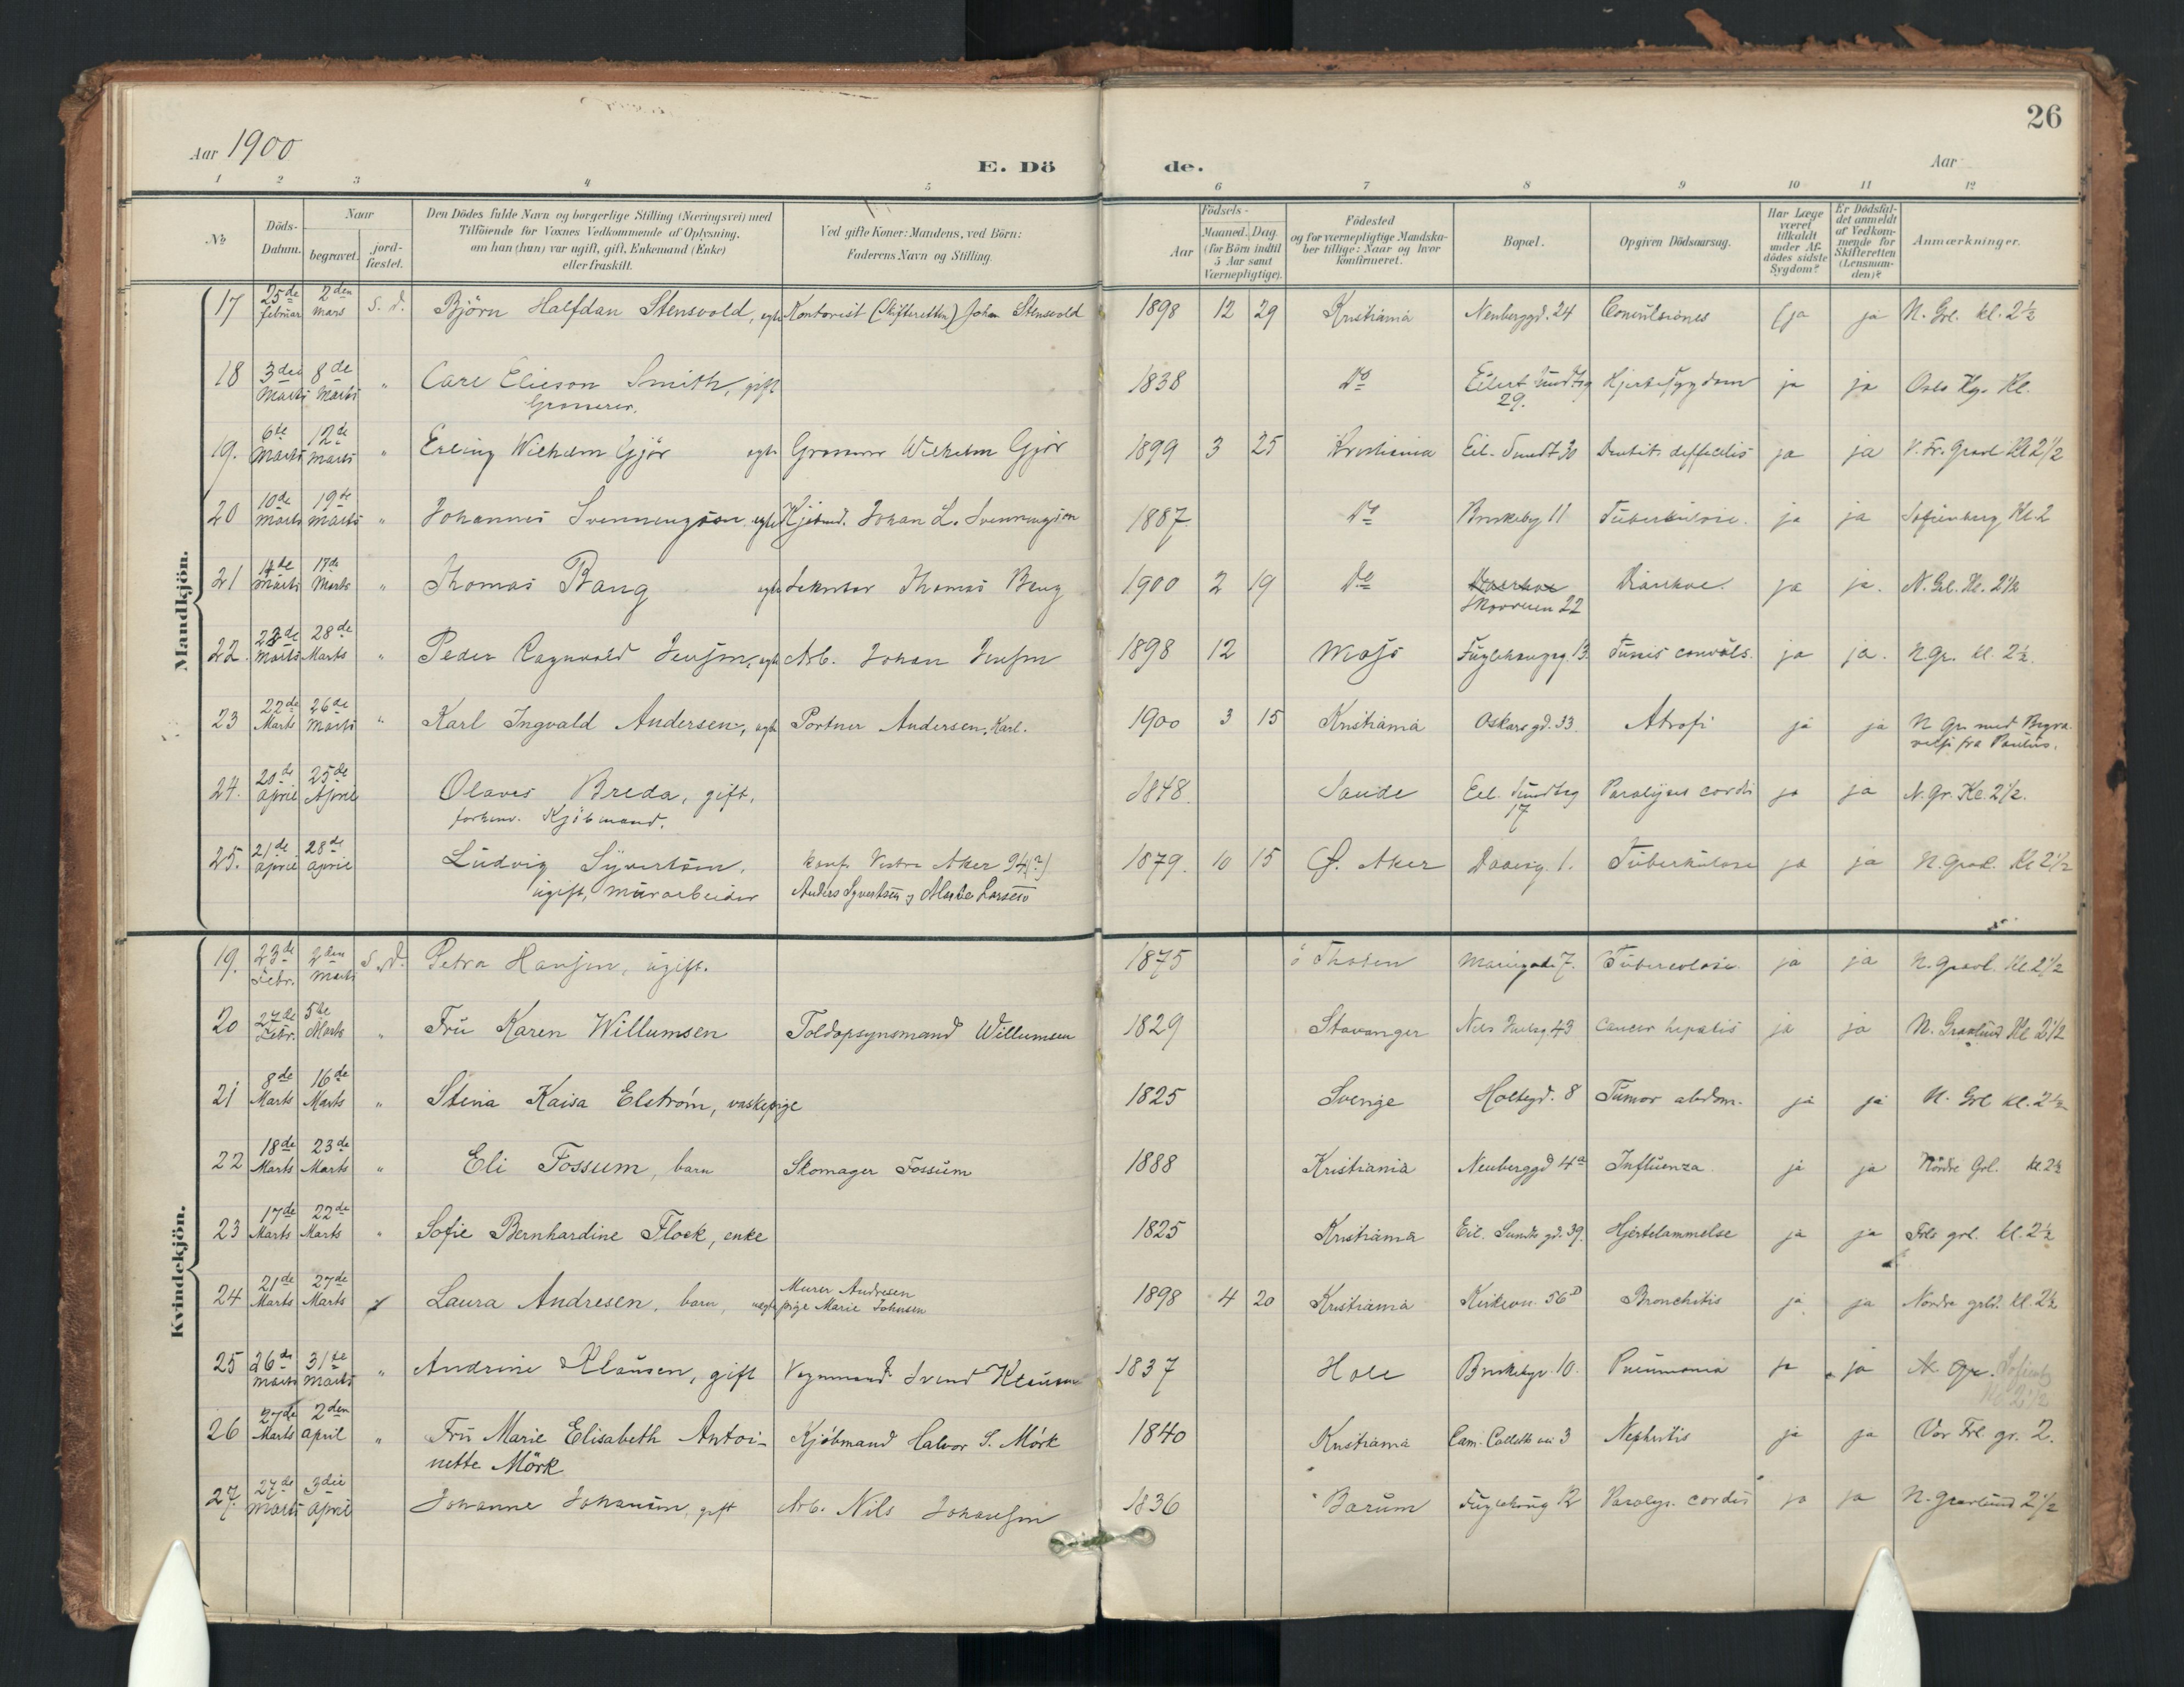 26
Aar 1900
E. Dö de.
Aar
1 2 3 4 5 6 7 8 9 10 11 12
No
Döds-
Datum.
Naar
begravet.
jord-
fæstet.
Den Dödes fulde Navn og borgerlige Stilling (Næringsvei) med
Tilföiende for Voxnes Vedkommende af Oplysning,
om han (hun) var ugift, gift, Enkemand (Enke)
eller fraskilt.
Ved gifte Koner: Mandens, ved Börn:
Faderens Navn og Stilling.
Födsels-
Aar
Maaned. Dag.
(for Börn indtil
5 Aar samt
Værnepligtige).
Födested
og for værnepligtige Mandska-
ber tillige: Naar og hvor
konfirmeret.
Bopæl.
Opgiven Dödsaarsag.
Har Læge
været
tilkaldt
under Af-
dödes sidste
Sygdom?
Er Dödsfal-
det anmeldt
af Vedkom-
mende for
Skifteretten
(Lensman-
den)?
Anmærkninger.
Mandkjön.
17 25de februar 2den mars S. D. Björn Halfdan Stensvold, egte Kontorist (Skifteretten) Johan Stensvold 1898 12 29 Kristiania Neuberggd. 24 Convulsiones ja ja N. Grl. kl. 2½
18 3den Marts 8de Marts " Carl Elieson Smith, gift 1838 Do Eilert Sundtsg 29. Hjertesygdom ja ja Oslo Kg. Kl.
Grosserer.
19. 6te Marts 12de Marts " Erling Wilhelm Gjör egte Grosserer Wilhelm Gjör 1899 3 25 Kristiania Eil. Sundt 30 Dentit. difficilis ja ja V. Fr. Gravl Kl 2½
20 10de Marts 19de Marts " Johannes Svenningson egte Kjöbmd. Johan L. Svenningson 1887 Do Briskeby 11 Tuberkulose. ja ja Sofienberg Kl. 2
21 14de Marts 17de Marts " Thomas Bang egte Sekretær Thomas Bang 1900 2 19 Do 22 Diarrhoe. ja ja. N. Grl. Kl. 2½
22. 23de Marts 28de Marts " Peder Ragnvald Jensen, egte Arb. Johan Jensen 1898 12 Moss Fuglehaugsg. 13. Tussis convuls. ja ja. N. Gr. kl. 2½.
23 22de Marts 26de Marts " Karl Ingvald Andersen, egte Portner Andersen, Karl. 1900 3 15 Kristiania Oskarsgd. 33. Atrofi ja ja N Gr. med Begra-
velse fra Paulus.
24. 20de April 25de April Olaves Breda, gift, 1848. Sande Eil. Sundtsg 17 Paralysis cordis ja ja N. Gr. Kl. 2½.
forhenv. Kjöbmand.
25. 21de April 28de April Ludvig Syvertsen, konf. Vestre Aker 94(?) 1879. 10 15 Ø. Aker Daaesg. 1. Tuberkulose ja ja N. Gravl. Kl 2½
ugift, murarbeider Anders Syvertsen og Marthe Larssen
Kvindekjön.
19. 23de Febr. 2den Marts S. D. Petra Hansen, ugift. 1875 ö Thoten Mariegade 7. Tuberculose ja ja N. Gravl. Kl 2½
20 27de Febr. 5te Marts " Fru Karen Willumsen Toldopsynsmand Willumsen 1829 Stavanger Nils Juelsg. 43 Cancer hepatis ja ja N. Gravlund Kl 2½
21 8de Marts 16de Marts " Stina Kaisa Elström, vaskepige 1825 Sverige Holtegd. 8 Tumor abdom. ja ja N. Grl kl. 2½
22 18de Marts 23de Marts " Eli Fossum, barn Skomager Fossum 1888 Kristiania Neuberggd 4a Influenza ja ja Nördre Grl. kl. 2½
23 17de Marts 22de Marts " Sofie Bernhardine Flock, enke 1825 Kristiania Eil. Sundts gd. 39. Hjertelammelse ja ja Frls grl. kl. 2½
24 21de Marts 27de Marts Laura Andresen, barn, uegte Murer Andresen 1898 4 20 Kristiania Kirkevn. 56D Bronchitis ja ja Nordre grld. kl. 2½
pige Marie Johnsen
25 26de Marts 31te Marts " Andrine Klausen, gift Vognmand Svend Klausen 1837 Hole Briskebyv. 10. Pneumonia ja ja N. Gr. Sofienb
Kl 2½
26 27de Marts 2den April " Fru Marie Elisabeth Antoi- Kjöbmand Halvor S. Mörk 1840 Kristiania Cam. Colletts vei 3 Nephritis ja ja Vor Frl. gr. 2.
nette Mörk
27. 27de Marts 3die April Johanne Johansen, gift Arb. Nils Johansen 1836 Barum Fuglehaug 12 Paralys. cordis ja ja N. Gravlund 2½